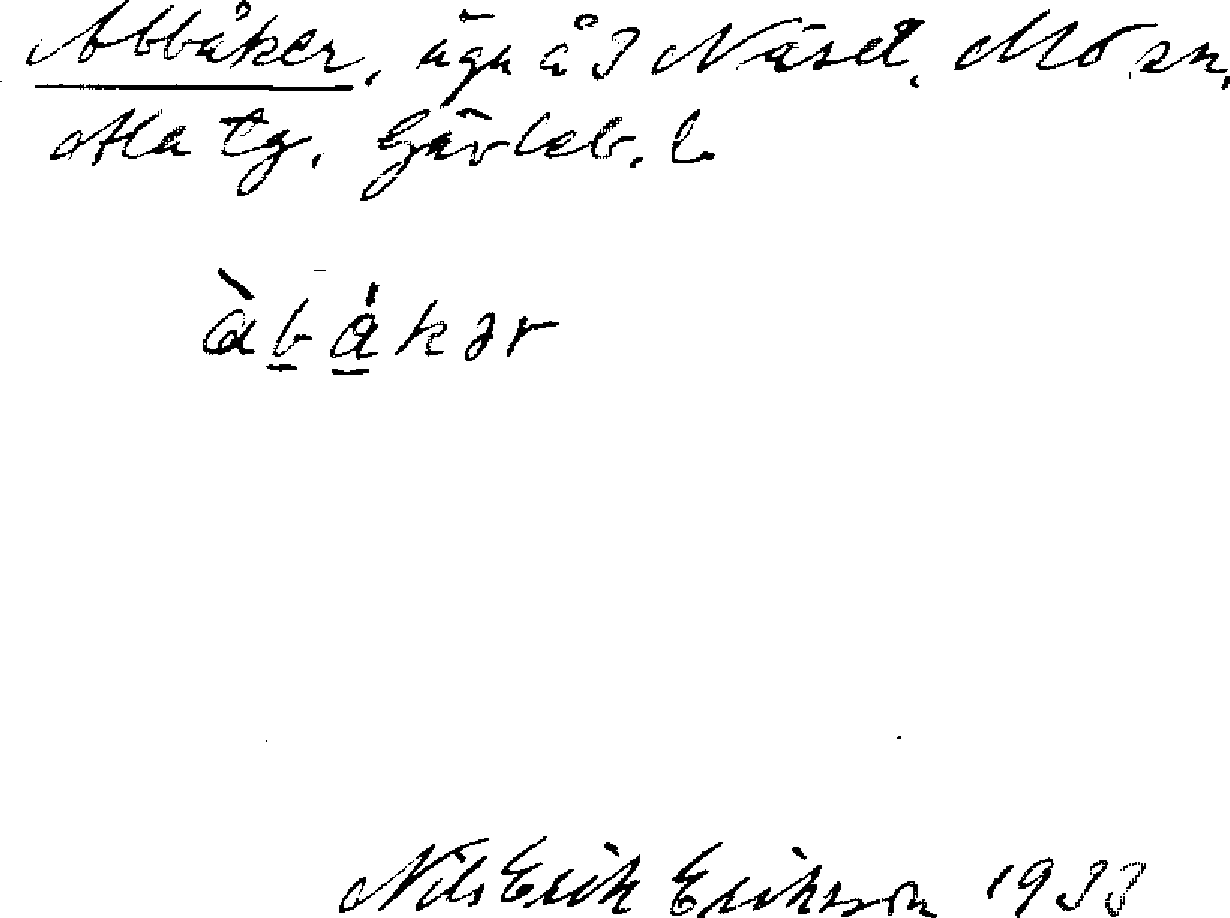 Abbåker, ägn å 3 Näset, Mo sn,
Ala tg, Gävleb. l.
àbåkər
Nils Erik Eriksson 1933